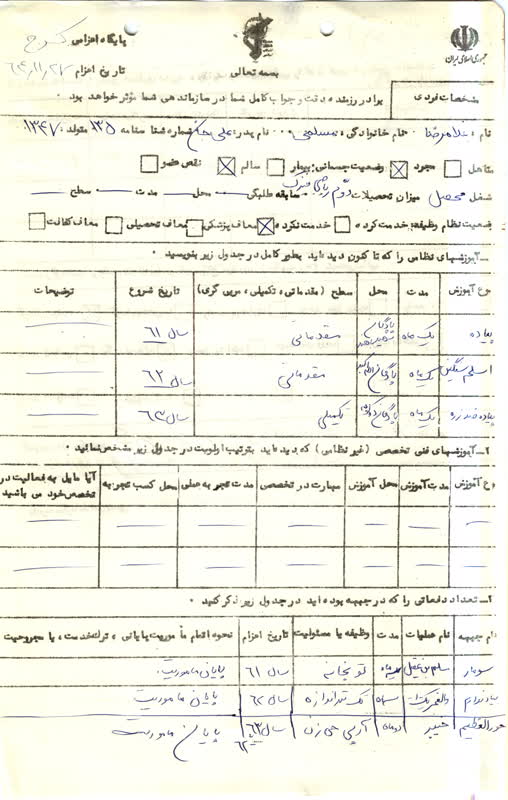 جمهوری اسلامی ایران
بسمه تعالی
پایگاه اعزامی کرج
تاریخ اعزام
مشخصات فردی
برادر رزمنده دقت و جواب کامل شما در سازماندهی شما مؤثر خواهد بود .
نام : غلامرضا نام خانوادگی : مسلمی نام پدر : علی شماره شناسنامه ۱۳۵ متولد : ۱۳۴۷
متاهل مجرد وضعیت جسمانی : بیمار سالم نقص عضو
شغل محصل میزان تحصیلات دوم ریاضی فیزیک سابقه طلبگی محل مدت سطح
وضعیت نظام وظیفه : خدمت کرده خدمت نکرده معاف پزشکی معاف تحصیلی معاف کفالت
۱ـ آموزشهای نظامی را که تا کنون دیده اید بطور کامل در جدول زیر بنویسید .
نوع آموزش مدت محل سطح ( مقدماتی ، تکمیلی ، مربی گری ) تاریخ شروع توضیحات
پیاده یک ماه پادگان مقدماتی سال ۶۱
اسلحه سنگین یک ماه پادگان مقدماتی سال ۶۲
پیاده یک ماه پادگان تکمیلی سال ۶۳
۲ـ آموزشهای فنی تخصصی ( غیر نظامی ) که دیده اید بترتیب اولویت در جدول زیر مشخص نمائید .
نوع آموزش مدت آموزش محل آموزش مهارت در تخصصی مدت تجربه عملی محل کسب تجربه آیا مایل به فعالیت در تخصص خود می باشید
۳ـ تعداد دفعاتی را که در جبهه بوده اید در جدول زیر ذکر کنید .
نام جبهه نام عملیات مدت وظیفه یا مسئولیت تاریخ اعزام نحوه اتمام مأموریت پایانی ، ترک خدمت ، یا مجروحیت
سومار مسلم بن عقیل سه ماه توپخانه سال ۶۱ پایان ماموریت
والفجر سه ماه تک تیرانداز سال ۶۲ پایان ماموریت
هورالعظیم خیبر دو ماه آرپی جی زن سال ۶۳ پایان ماموریت